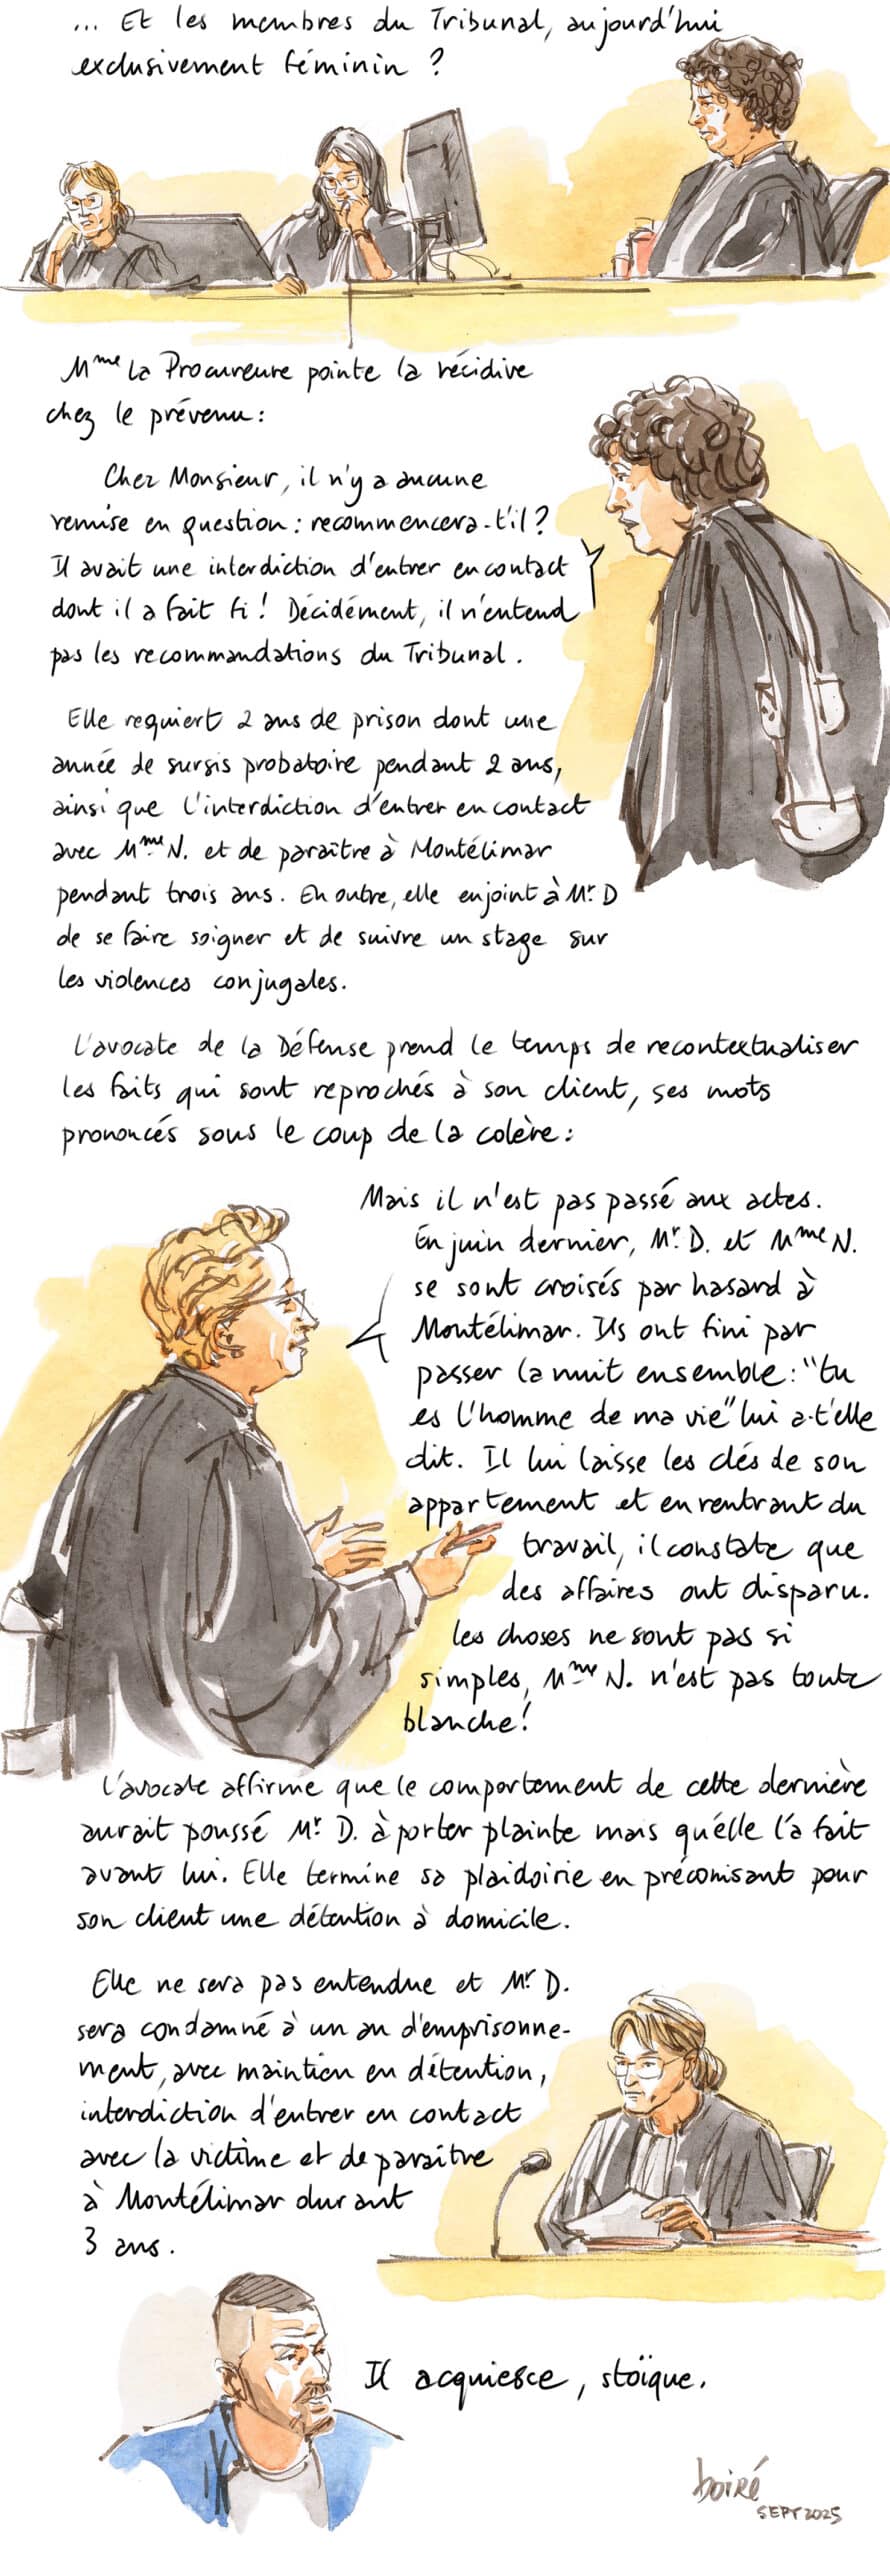 ... Et les membres du Tribunal, aujourd'hui
exclusivement féminin ?
Mme la Procureure pointe la récidive
chez le prévenu :
Chez Monsieur, il n'y a aucune
remise en question : recommencera-t'il ?
Il avait une interdiction d'entrer en contact
dont il a fait fi ! Décidément, il n'entend
pas les recommandations du Tribunal.
Elle requiert 2 ans de prison dont une
année de sursis probatoire pendant 2 ans,
ainsi que l'interdiction d'entrer en contact
avec Mme N. et de paraître à Montélimar
pendant trois ans. En outre, elle enjoint à Mr. D
de se faire soigner et de suivre un stage sur
les violences conjugales.
L'avocate de la Défense prend le temps de recontextualiser
les faits qui sont reprochés à son client, ses mots
prononcés sous le coup de la colère :
Mais il n'est pas passé aux actes.
En juin dernier, Mr. D. et Mme N.
se sont croisés par hasard à
Montélimar. Ils ont fini par
passer la nuit ensemble : "tu
es l'homme de ma vie" lui a-t'elle
dit. Il lui laisse les clés de son
appartement et en rentrant du
travail, il constate que
des affaires ont disparu.
Les choses ne sont pas si
simples, Mme N. n'est pas toute
blanche !
L'avocate affirme que le comportement de cette dernière
aurait poussé Mr. D. à porter plainte mais qu'elle l'a fait
avant lui. Elle termine sa plaidoirie en préconisant pour
son client une détention à domicile.
Elle ne sera pas entendue et Mr D.
sera condamné à un an d'emprisonne-
ment, avec maintien en détention,
interdiction d'entrer en contact
avec la victime et de paraître
à Montélimar durant
3 ans.
Il acquiesce, stoïque.
boiré
SEPT 2025